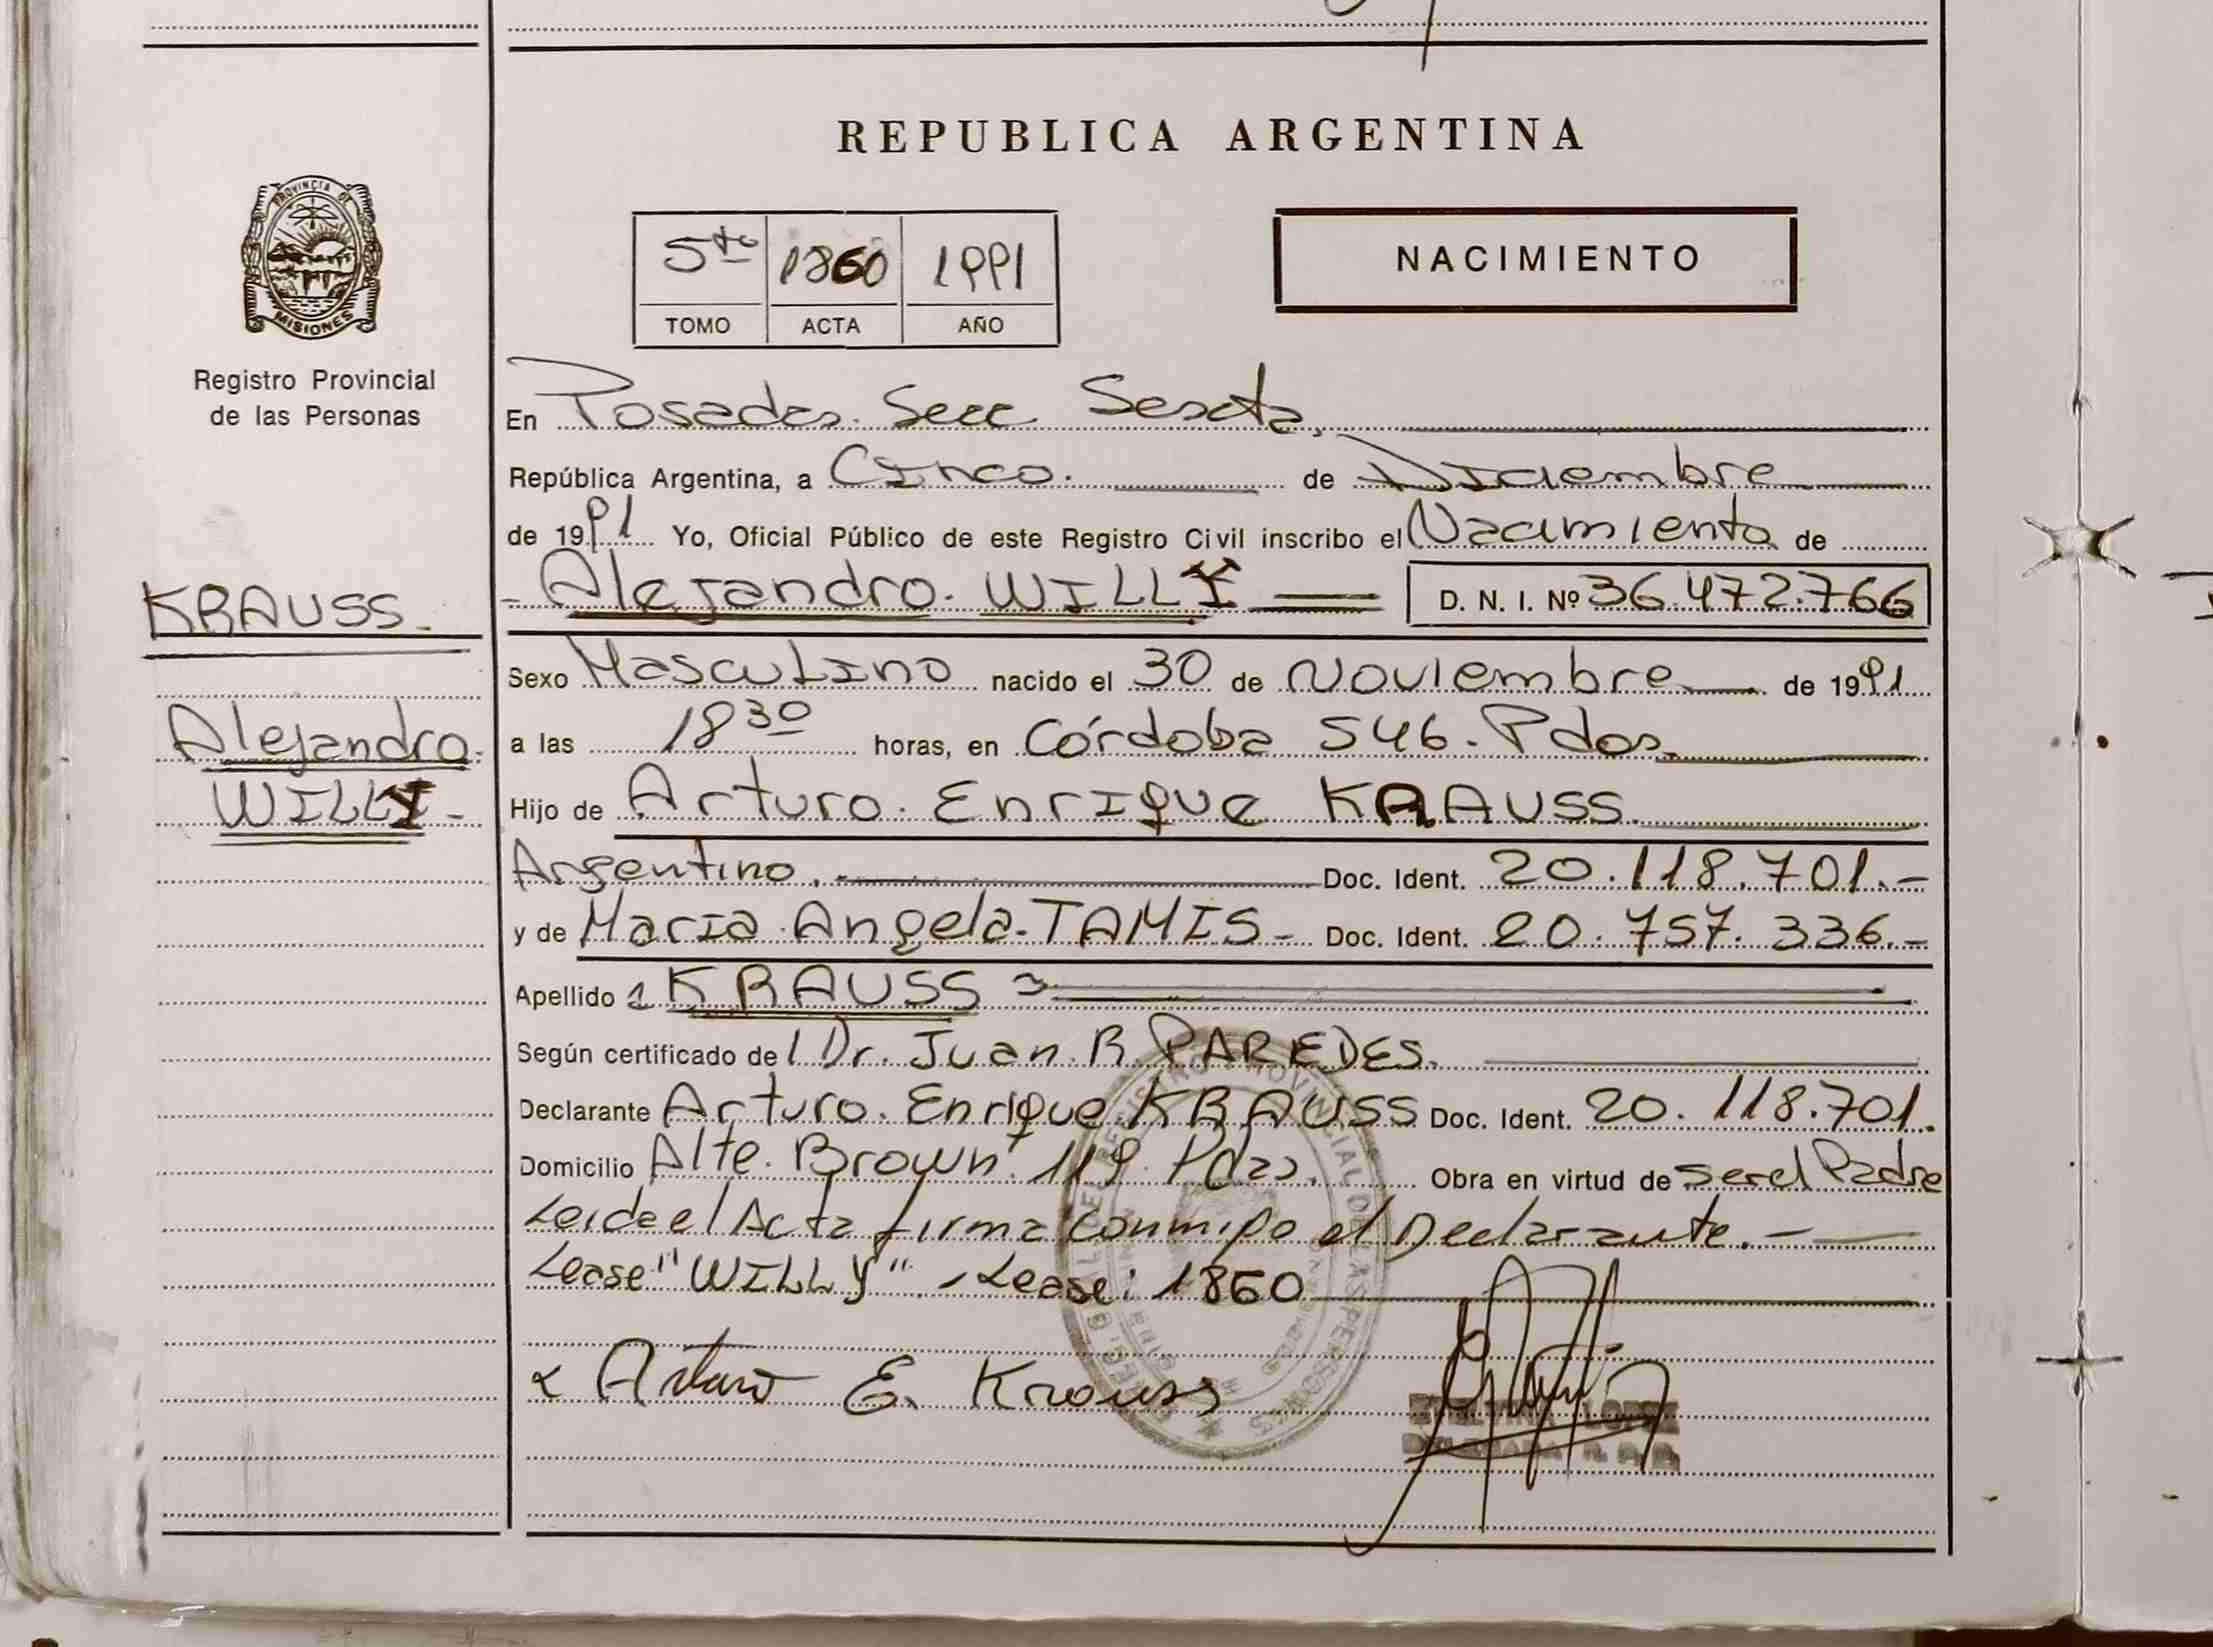 REPUBLICA ARGENTINA
PROVINCIA DE
MISIONES
Registro Provincial
de las Personas
5to 1860 1991
TOMO ACTA AÑO
NACIMIENTO
En Posadas. Secc. Sexta,
República Argentina, a Cinco. de Diciembre
de 1991 Yo, Oficial Público de este Registro Civil inscribo el Nacimiento de
- Alejandro. WILLY D. N. I. Nº 36.472.766
KRAUSS.
Alejandro.
WILLY -
Sexo Masculino nacido el 30 de Noviembre de 1991
a las 18 30 horas, en Córdoba 546. Pdas.
Hijo de Arturo. Enrique KRAUSS.
Argentino. Doc. Ident. 20.118.701.-
y de Maria Angela. TAMIS - Doc. Ident. 20.757.336.-
Apellido KRAUSS
Según certificado del Dr. Juan R. PAREDES.
Declarante Arturo. Enrique. KRAUSS Doc. Ident. 20.118.701.
Domicilio Alte. Brown 119. Pdas. Obra en virtud de ser el Padre
Leida el Acta firma conmigo el Declarante. -
Lease "WILLY" - Lease: 1860
Arturo E. Krauss
LOPEZ